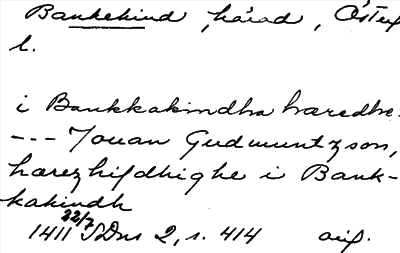 Bankekind, härad, Östergl.
i Bankkakindha hæredhe.
--- Jouan Gudmuntzson,
hærezhifdhighe i Bank-
kakindh
1411 22/7 SDns 2, s. 414 avs.